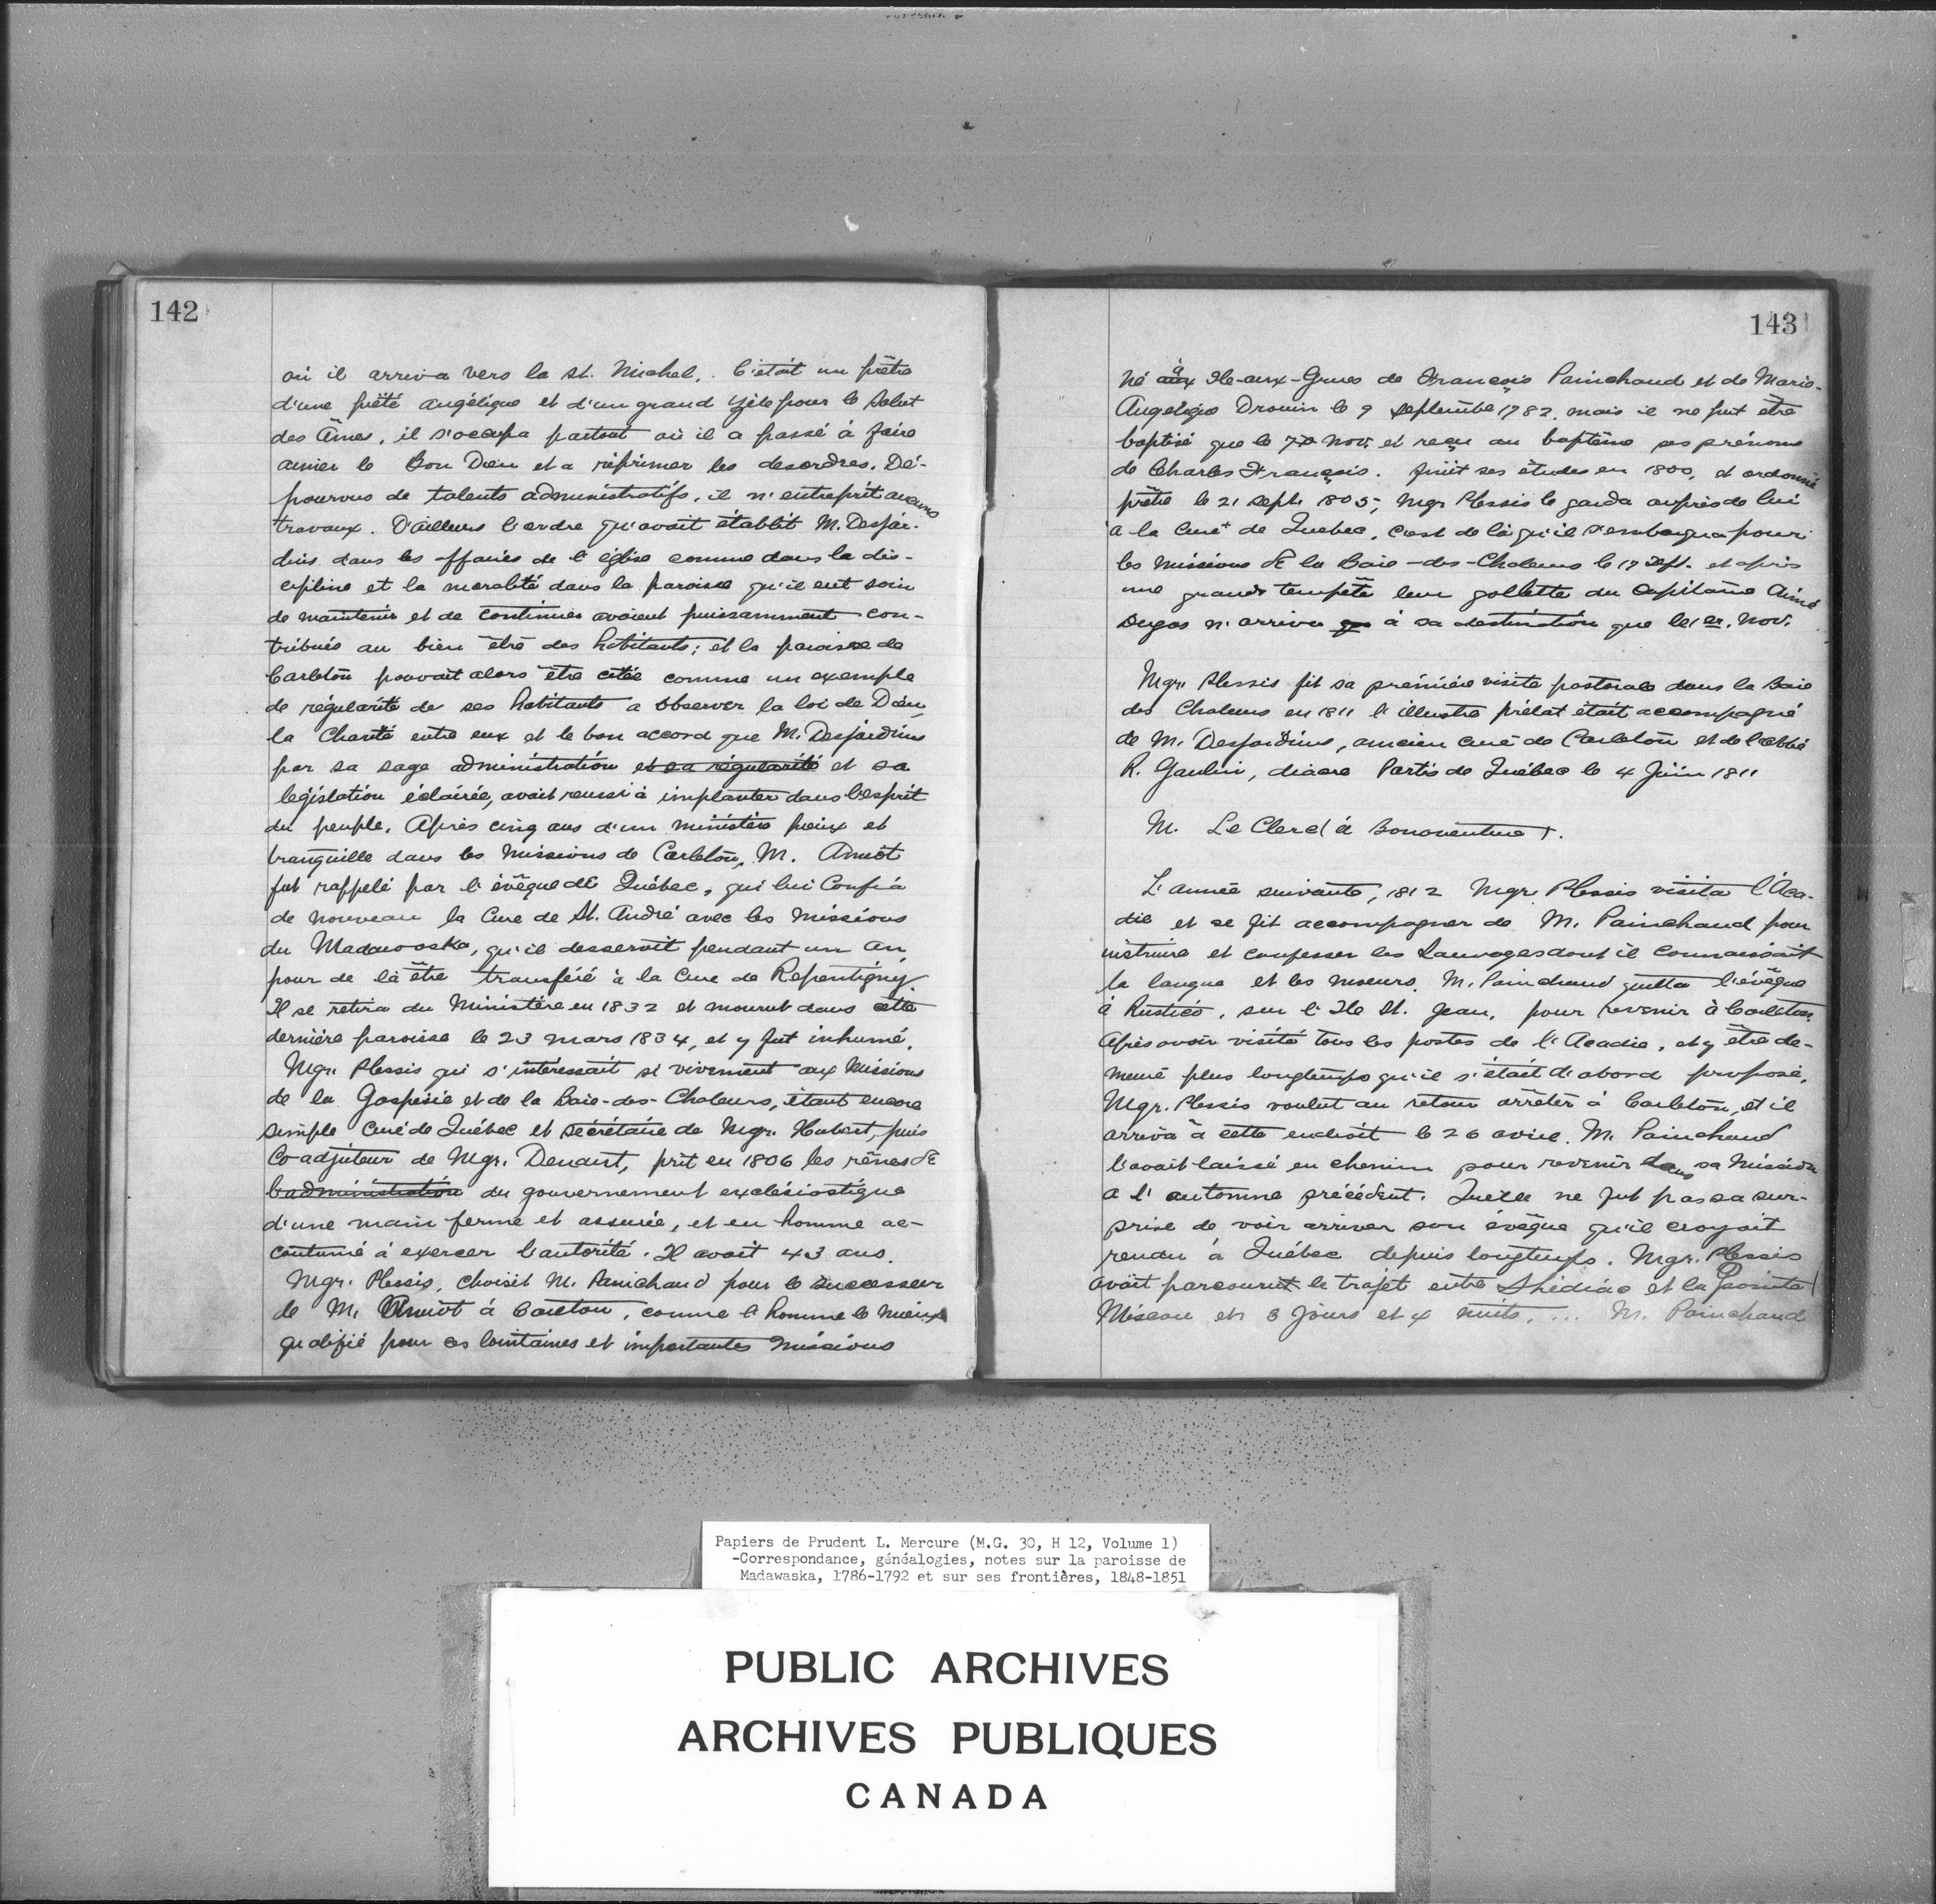 142
où il arriva vers la St. Michel. C'était un prêtre
d'une piété angélique et d'un grand zèle pour le Salut
des Âmes, il s'occupa partout où il a passé à faire
aimer le Bon Dieu et a réprimer les desordres. Dé-
pourvus de talents administratifs, il n'entreprit aucuns
travaux. D'ailleurs l'ordre qu'avait établit M. Desjar-
dins dans les affaires de l'église comme dans la dis-
cipline et la moralité dans la paroisse qu'il eut soin
de maintenir et de continuer avaient puissamment con-
tribués au bien être des habitants; et la paroisse de
Carleton pouvait alors être citée comme un exemple
de régularité de ses habitants a observer la loi de Dieu,
la Charité entre eux et le bon accord que M. Desjardins
par sa sage administration et sa régularité et sa
legislation éclairée, avait reussi à implanter dans l'esprit
du peuple. Après cinq ans d'un ministère pieux et
tranquille dans les Missions de Carleton, M. Amiot
fut rappelé par l'évêque de Québec, qui lui Confia
de nouveau la Cure de St. André avec les missions
du Madawaska, qu'il desservit pendant un An,
pour de là être transféré à la Cure de Repentigny.
Il se retira du Ministère en 1832 et mourut dans cette
dernière paroisse le 23 mars 1834, et y fut inhumé.
Mgr. Plessis qui s'intéressait si vivement aux Missions
de la Gaspésie et de la Baie-des-Chaleurs, étant encore
simple Curé de Québec et secrétaire de Mgr. Hubert, puis
Co-adjuteur de Mgr. Denaut, prit en 1806 les rênes de
l'administration du gouvernement exclésiastique
d'une main ferme et assurée, et en homme ac-
coutumé à exercer l'autorité. Il avait 43 ans.
Mgr. Plessis, choisit M. Painchaud pour le successeur
de M. Amiot à Carleton, comme l'homme le mieux
qualifié pour ces lointaines et importantes missions
143
Né aux à Ile-aux-Grues de François Painchaud et de Marie-
Angelique Drouin le 9 septembre 1782 mais il ne fut être
baptisé que le Nov. et reçu au baptême ses prénoms
de Charles François. finit ses études en 1800, et ordonné
prêtre le 21 sept. 1805, Mgr Plessis le garda auprès de lui
à la Cure de Quebec, c'est de là qu'il s'embarqua pour
les Missions de la Baie-des-Chaleurs le 17 Sept. et après
une grande tempête leur gollette du Capitaine Aimé
Dugas n'arriva que à sa destination que le 1er. Nov.
Mgr. Plessis fit sa première visite pastorale dans la Baie
des Chaleurs en 1811 l'illustre prélat était accompagné
de M. Desjardins, ancien curé de Carleton et de l'abbé
R. Gaulin, diacre Partis de Québec le 4 Juin 1811
M. Le Clerc à Bonaventure
L'année suivante, 1812 Mgr. Plessis visita l'Aca-
die et se fit accompagner de M. Painchaud pour
instruire et confesser les Sauvages dont il connaissait
la langue et les moeurs. M. Painchaud quitta l'évêque
à Rustico, sur l'Ile St. Jean, pour revenir à Carleton.
Après avoir visité tous les postes de l'Acadie, et y être de-
meuré plus longtemps qu'il s'était d'abord proposé,
Mgr. Plessis voulut au retour arrêter à Carleton, et il
arriva à cette endroit le 26 avril. M. Painchaud
l'avait laissé en chemin pour revenir dans sa Mission
a l'automne précédent. Quelle ne fut pas sa sur-
prise de voir arriver son évêque qu'il croyait
rendu à Québec depuis longtemps. Mgr. Plessis
avait parcourut le trajet entre Shédiac et la Pointe
Miscou en 3 Jours et 4 nuits, ... M. Painchaud
Papiers de Prudent L. Mercure (M.G. 30, H 12, Volume 1)
-Correspondance, généalogies, notes sur la paroisse de
Madawaska, 1786-1792 et sur ses frontières, 1848-1851
PUBLIC ARCHIVES
ARCHIVES PUBLIQUES
CANADA